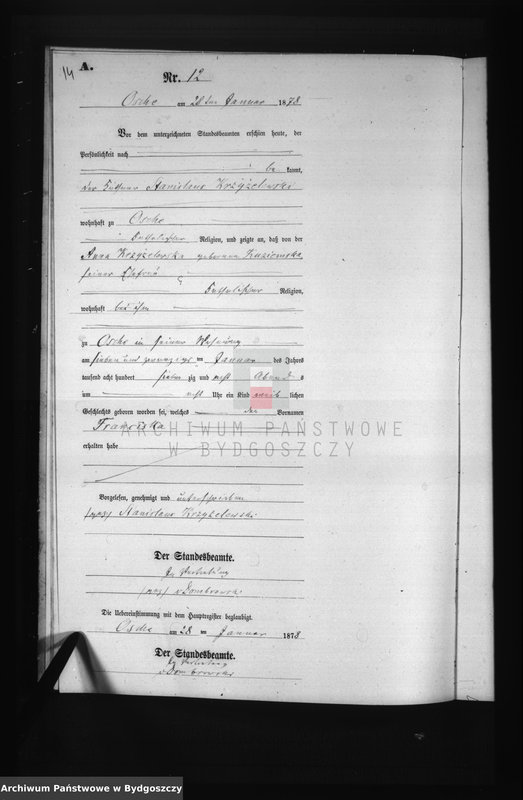 14
A.
Nr. 12
Osche am 28ten Januar 1878
Vor dem unterzeichneten Standesbeamten erschien heute, der
Persönlichkeit nach
be kannt,
der Stanislaus Krzyżelewski
wohnhaft zu Osche
katholischer Religion, und zeigte an, daß von der
Anna Krzyżelewska geborene
seiner Ehefrau
katholischer Religion,
wohnhaft bei ihm
zu Osche in seiner Wohnung
am sieben und zwanzigsten Januar des Jahres
tausend acht hundert sieben zig und acht Abend s
um acht Uhr ein Kind weib lichen
Geschlechts geboren worden sei, welches den Vornamen
Franziska
ARCHIWUM PAŃSTWOWE
W BYDGOSZCZY
erhalten habe
Vorgelesen, genehmigt und unterschrieben
(gez) Stanislaus Krzyżelewski
Der Standesbeamte.
In Vertretung
(gez) v Dombrowski
Die Uebereinstimmung mit dem Hauptregister beglaubigt.
Osche am 28 ten Januar 1878
Der Standesbeamte.
In Vertretung
v Dombrowski
Archiwum Państwowe w Bydgoszczy